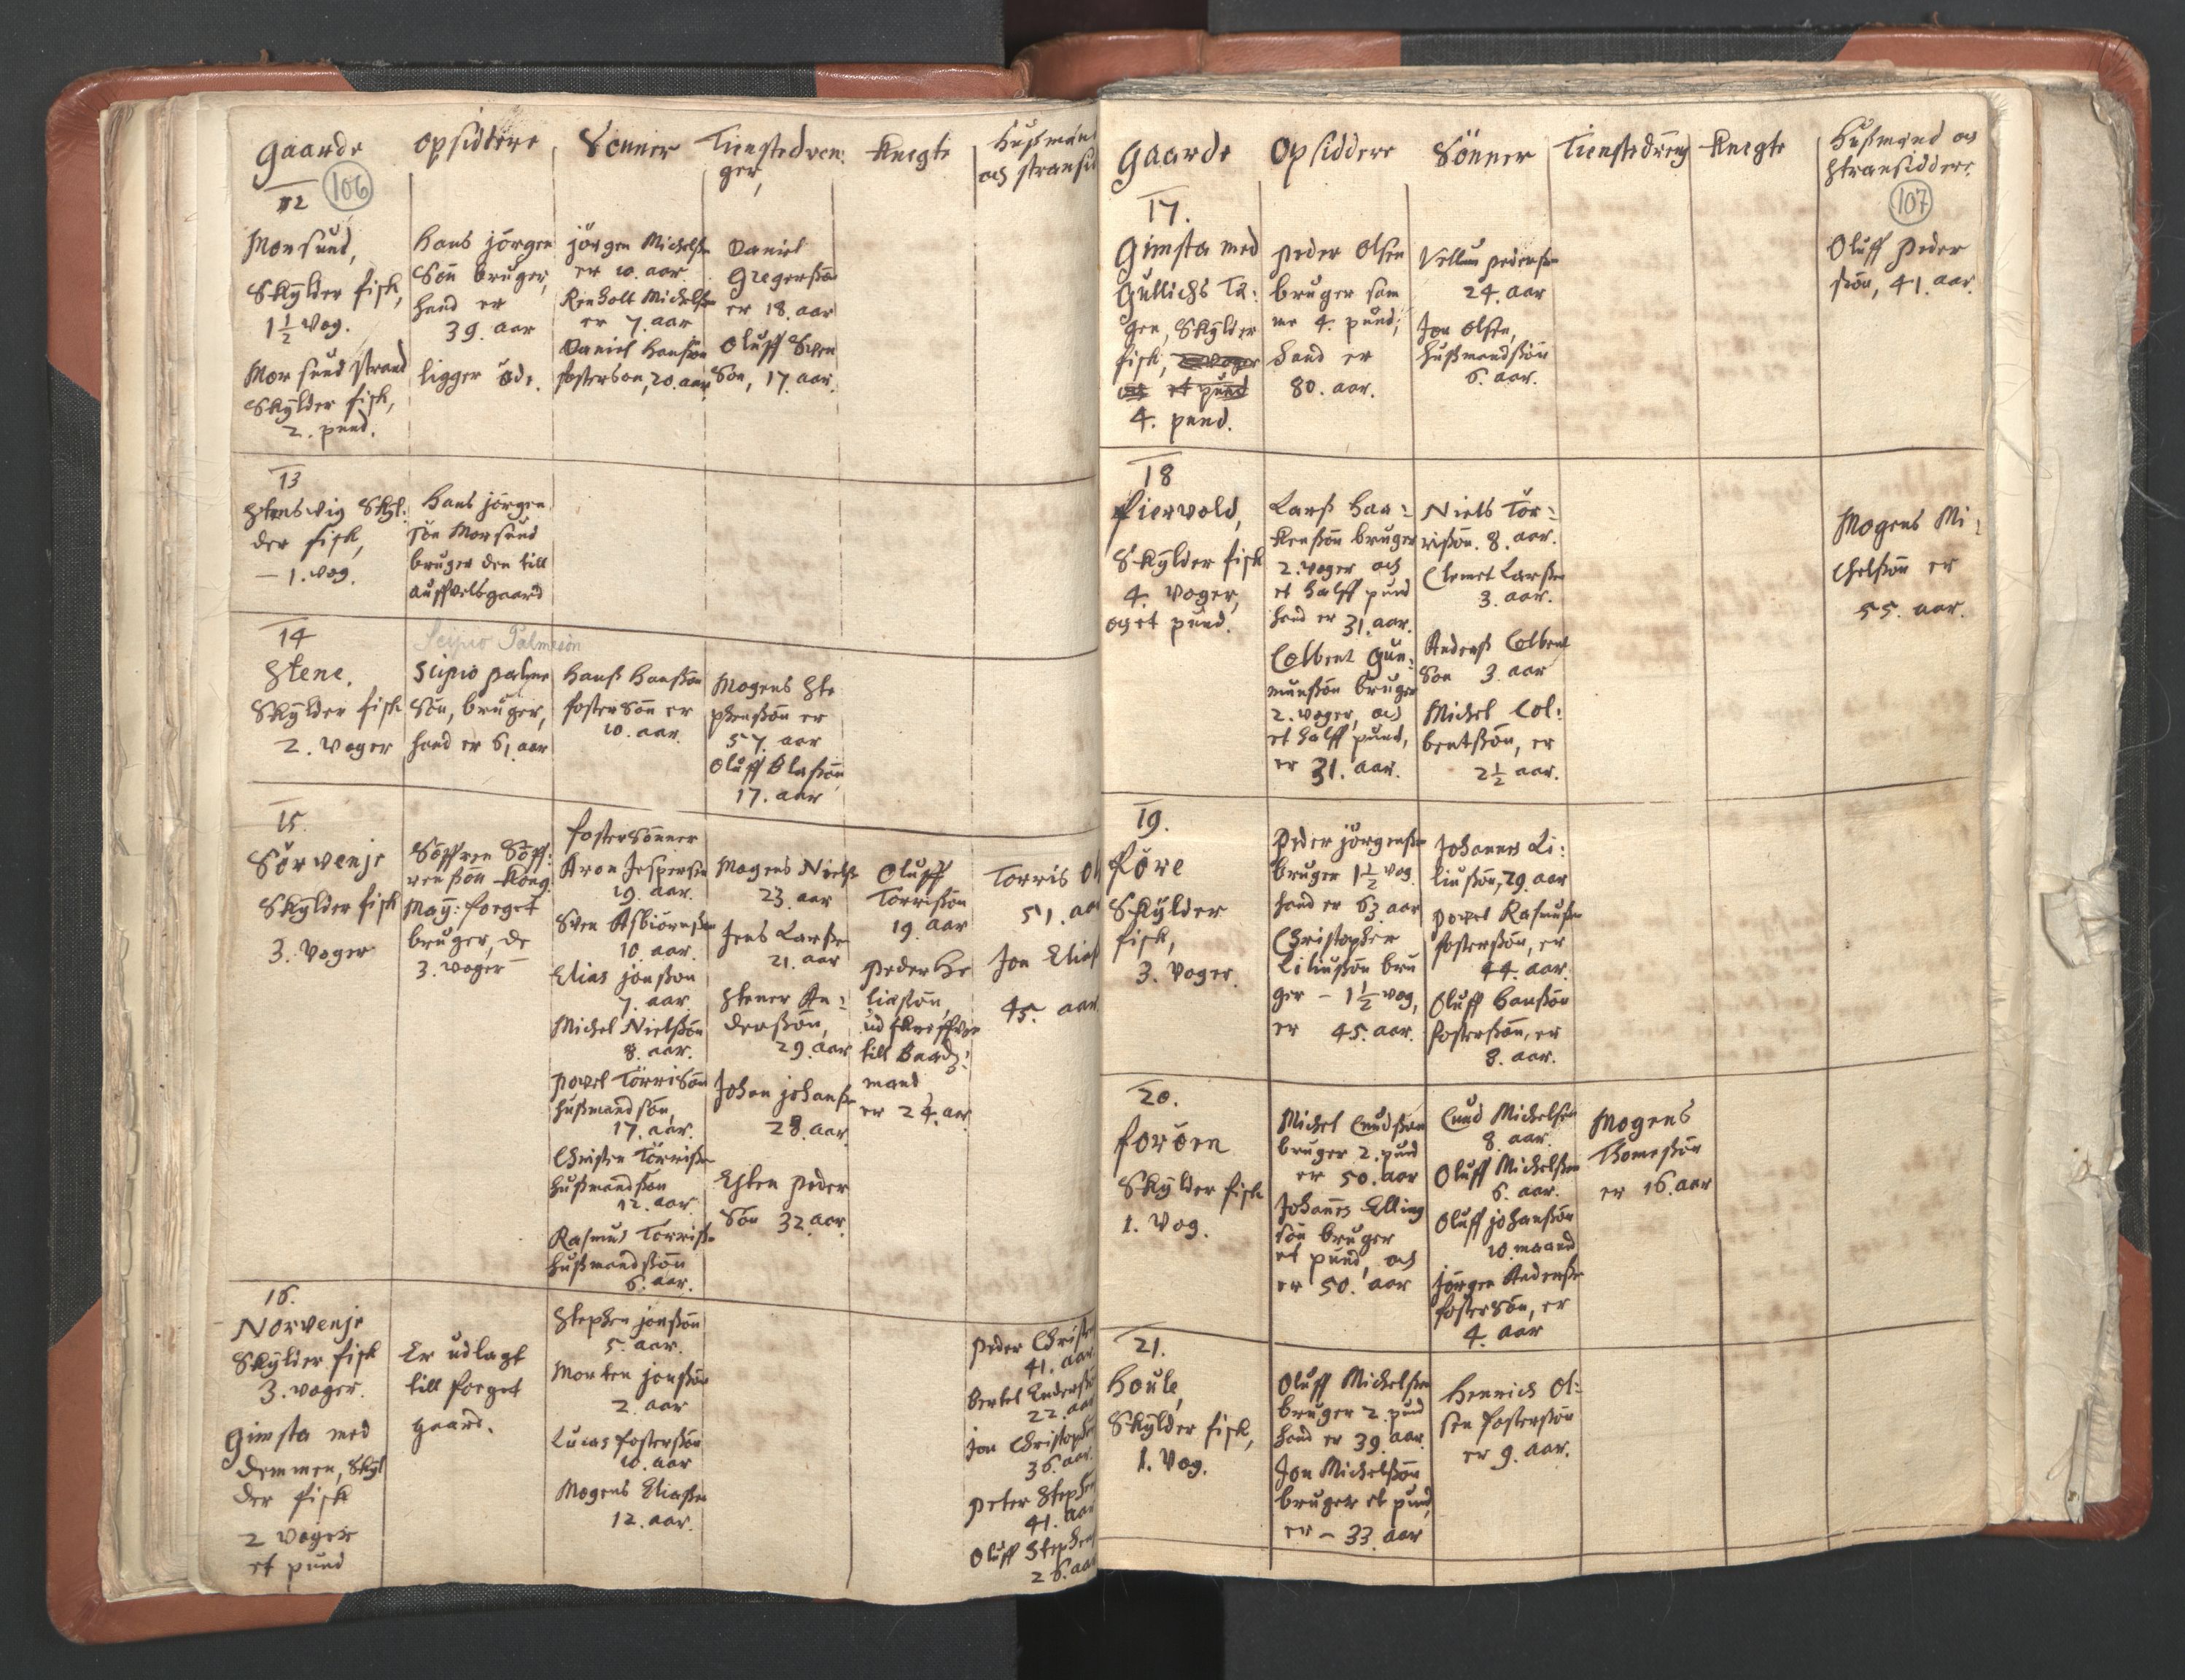 Gaarde
Opsiddere
Sönner
Tienstedren:
ger,
Knegte
Husmæn
och stransid
12
106
Morsund,
Skÿlder fisk,
1½ Vog.
Morsund strand
Skÿlder fisk,
2. pund.
Hans jörgen
Sön bruger,
hand er
39. aar
ligger öde.
jörgen Michelsn
er 10. aar
Reinholt Michelsn
er 7. aar
Daniel Hansön
fosterson, 20. aar
Daniel
Gregersön
er 18. aar
Oluff Sven
Sön, 17 aar.
13
Stenswig Skÿl:
der fisk,
– 1. vog.
Hans jörgen
sön Morsund
bruger den till
auffvelsgaard
14
Stene.
Skÿlder fisk
2. voger
Scipio Palmesön
Scipio palme
Sön, bruger,
hand er 61 aar
Hans Hansön
foster Sön er
10. aar.
Mogens Ste
phensön er
57. aar
Oluff Olasön
17. aar
15.
Sörvenje
Skÿlder fisk
3. Voger
Söffren Söff:
rensön Kong.
Maÿ: foeget
bruger, de
3. voger
fostersönner
Aron Jespersen
19. aar.
Sven Asbiörnsen
10. aar.
Elias jonsson
7. aar
Michel Nielsön
8. aar.
Povel Törrisön
husmandsön,
17. aar.
Christen Törrisn
husmandsön
12. aar
Rasmus Törrisn
husmandsön
6. aar.
Mogens Nielsn
23. aar
Jens Larsen
21. aar
Stener An:
dersön,
29. aar
Johan johansn
28. aar.
Esten Peder
Sön 32. aar.
Oluff
Torrisön
19. aar
Peder He
liasön,
udskreffven
till Baadz:
mand
er 24. aar
Torris Ol
51. aa
Jon Elias
45. aar
16.
Norvenje
Skÿlder fisk
3. voger.
Gimsta med
Demmen, Skÿl
der fisk
2 voger
et pund
Er udlagt
till foeget
gaard.
Stephen jonsön
5. aar.
Morten jonsön
2. aar
Lucas fostersön
10. aar
Mogens Eliasen
12. aar.
Peder Christe
41. aar.
Bertel Anders
22. aar
Jon Christoph
36. aar.
Peter Stephe
41. aar
Oluff Stephen
26. aar
Gaarde
Opsiddere
Sönner
Tienstedreng
Knegte
Husmænd och
Stransiddere
17.
107
Gimsta med
Gullichs Ta:
gen, Skÿlder
fisk, 2 voger
et pund
4. pund.
Peder Olsen
bruger sam
me 4. pund,
hand er
80. aar.
Vellum pedersn
24. aar
Jon Olsen,
husmandsön
6. aar.
Oluff Peder
sön, 41. aar.
18
Fiervold,
Skÿlder fisk
4. voger,
og et pund.
Lars Haa:
kensön bruger
2. voger och
et halff pund
hand er 31. aar.
Colbent Gun:
munsön bruger
2. voger, och
et halff pund,
er 31. aar.
Niels Tör:
risön. 8. aar.
Clemet Larsen
3. aar.
Anders Colbent
Sön 3. aar
Michel Col:
bentsön, er
2½ aar.
Mogens Mi:
chelsön er
55. aar.
19.
Före
Skÿlder
fisk,
3. Voger.
Peder jörgensn
bruger 1½ vog
hand er 63 aar
Christopher
Liliusön bru
ger – 1½ vog,
er 45. aar.
Johannes Li:
liusön, 29. aar
Povel Rasmusn
fostersön, er
44. aar.
Oluff Hansön
fostersön, er
8. aar.
20.
Foröen
Skÿlder fisk
1. Vog.
Michel Cnudsøn
bruger 2. pund
er 50. aar
Johanes Elling
sön bruger
et pund, och
er 50. aar
Cnud Michelsen
8. aar.
Oluff Michelsen
6. aar.
Oluff johansön
10. maand
Jörgen Andersn
foster Sön, er
4. aar
Mogens
Thomesön
er 16. aar
21.
Houle,
Skÿlder fisk,
1. Vog.
Oluff Michelsen
bruger 2. pund
hand er 39. aar.
Jon Michelsön
bruger et pund,
er – 33. aar
Henrich Ol:
sen fostersön
er 9. aar.